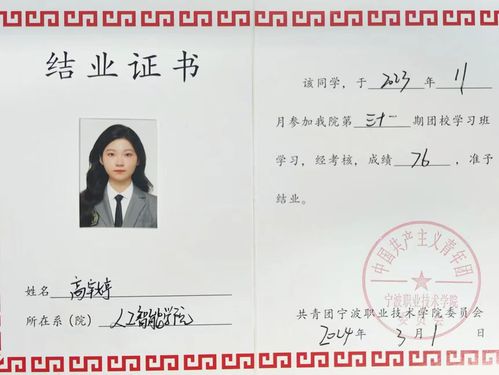 结业证书
姓名 高宇婷
所在系（院） 人工智能学院
该同学，于 2023 年 11
月参加我院第 三十一 期团校学习班
学习，经考核，成绩 76 ，准予
结业。
中国共产主义青年团
宁波职业技术学院
委员会
共青团宁波职业技术学院委员会
2024 年 3 月 1 日